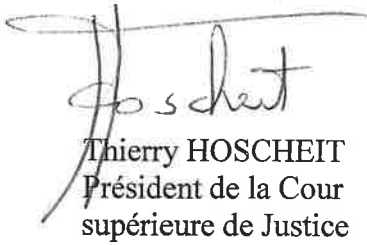 Hoscheit
Thierry HOSCHEIT
Président de la Cour
supérieure de Justice